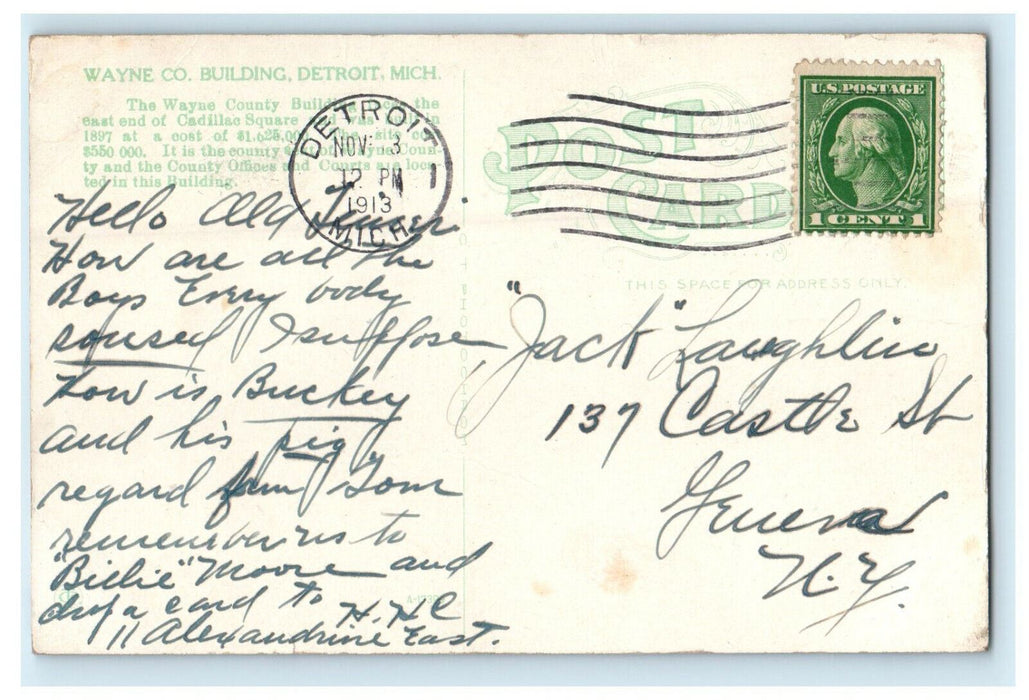 WAYNE CO. BUILDING, DETROIT, MICH.
The Wayne County Building faces the
east end of Cadillac Square and was built in
1897 at a cost of $1,625,000. The site cost
$550 000. It is the county of Wayne Coun-
ty and the County Offices and Courts are loca-
ted in this Building.
DETROIT
NOV 3
12 PM
1913
MICH.
1
POST
CARD
U.S. POSTAGE
1 CENT 1
THIS SPACE FOR ADDRESS ONLY.
Hello Old Timer
How are all the
Boys Every body
soused I suppose
How is Buckey
and his pig
regard from Tom
remember us to
"Billie" Moore and
drop a card to H.HC
11 Alexandrine East.
"Jack" Laughlin
137 Castle St
Geneva
N.Y.